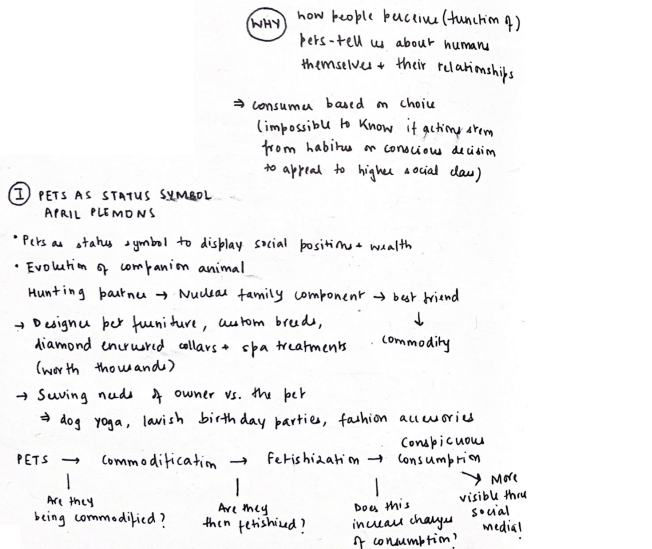 WHY
how people perceive (function of)
pets - tell us about humans
themselves + their relationships
⇒ consumer based on choice
(impossible to know if actions stem
from habitus or conscious decision
to appeal to higher social class)
I PETS AS STATUS SYMBOL
APRIL PLEMONS
• Pets as status symbol to display social position + wealth
• Evolution of companion animal
Hunting partner → Nuclear family component → best friend
↓
commodity
→ Designer pet furniture, custom breeds,
diamond encrusted collars + spa treatments
(worth thousands)
→ Serving needs of owner vs. the pet
⇒ dog yoga, lavish birthday parties, fashion accessories
PETS → Commodification → Fetishization → Conspicuous
consumption
Are they
being commodified?
Are they
then fetishized?
Does this
increase changes
of consumption?
→ More
visible thru
social
media!